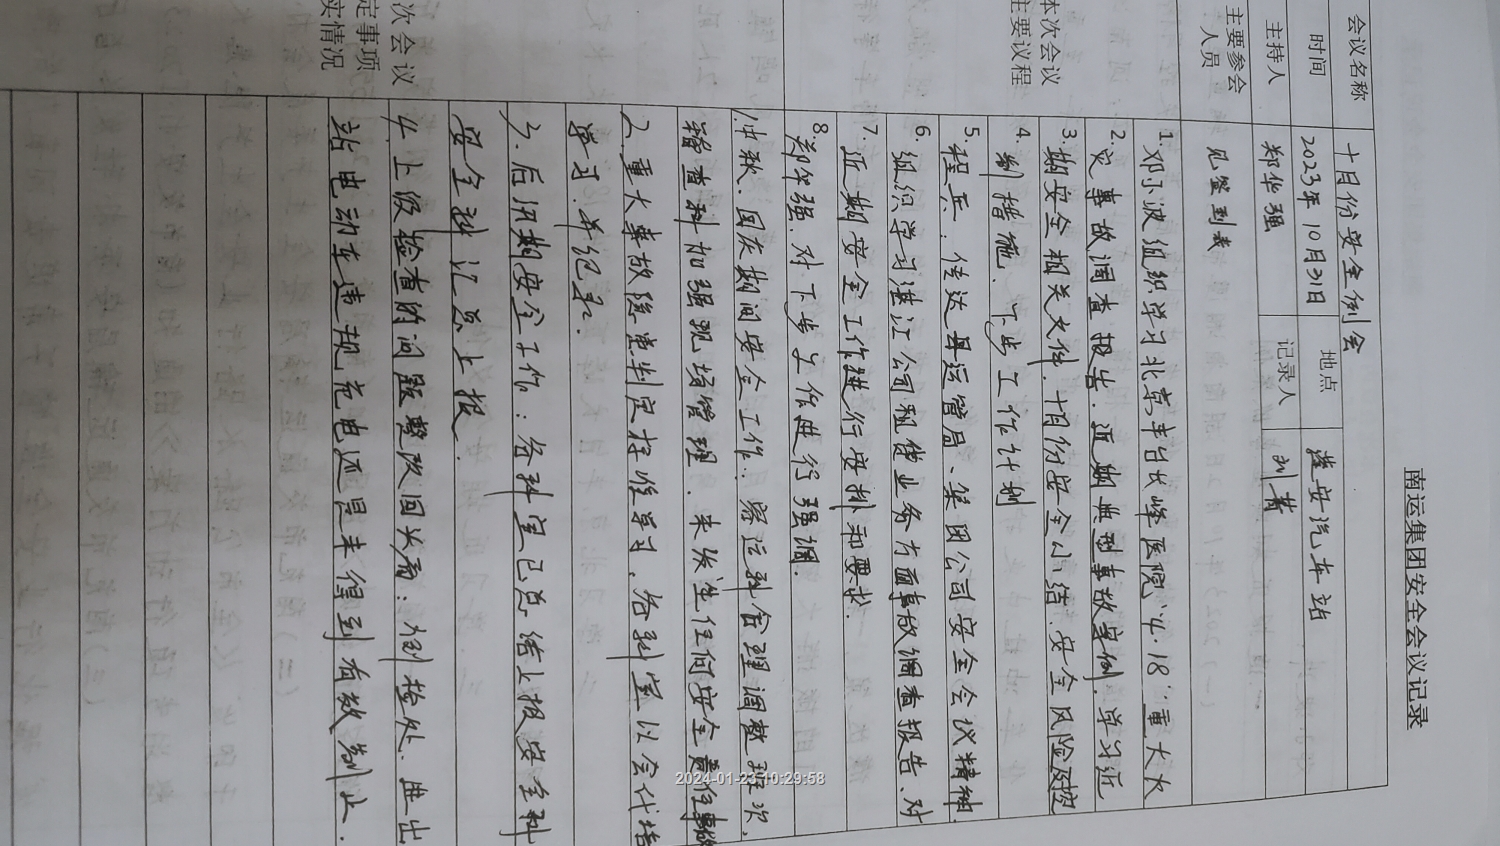 南运集团安全会议记录
会议名称 十月份安全例会
时间 2023年10月31日 地点 淮安汽车站
主持人 郑华强 记录人 刘菁
主要参会人员 见签到表
本次会议主要议程
1. 邓小波组织学习北京丰台长峰医院“4.18”重大火
2. 灾事故调查报告、近期典型事故案例、学习近
3. 期安全相关文件、十月份安全小结、安全风险及控
4. 制措施、下步工作计划
5. 程兵、传达县运管局、集团公司安全会议精神、
6. 组织学习湛江公司租赁业务方面事故调查报告、对
7. 近期安全工作进行安排和要求.
8. 郑华强、对下步工作进行强调.
次会议
定事项
实情况
1.中秋、国庆期间安全工作:客运科合理调整班次,
稽查科加强现场管理,未发生任何安全责任事故
2.重大事故隐患判定标准学习,各科室以会代培
学习,并纪录.
3.后汛期安全工作:各科室已总结上报安全科
安全科汇总上报.
4.上级检查的问题整改回头看:例检处、进出
站电动车违规充电还是未得到有效制止.
2024-01-23 10:29:58